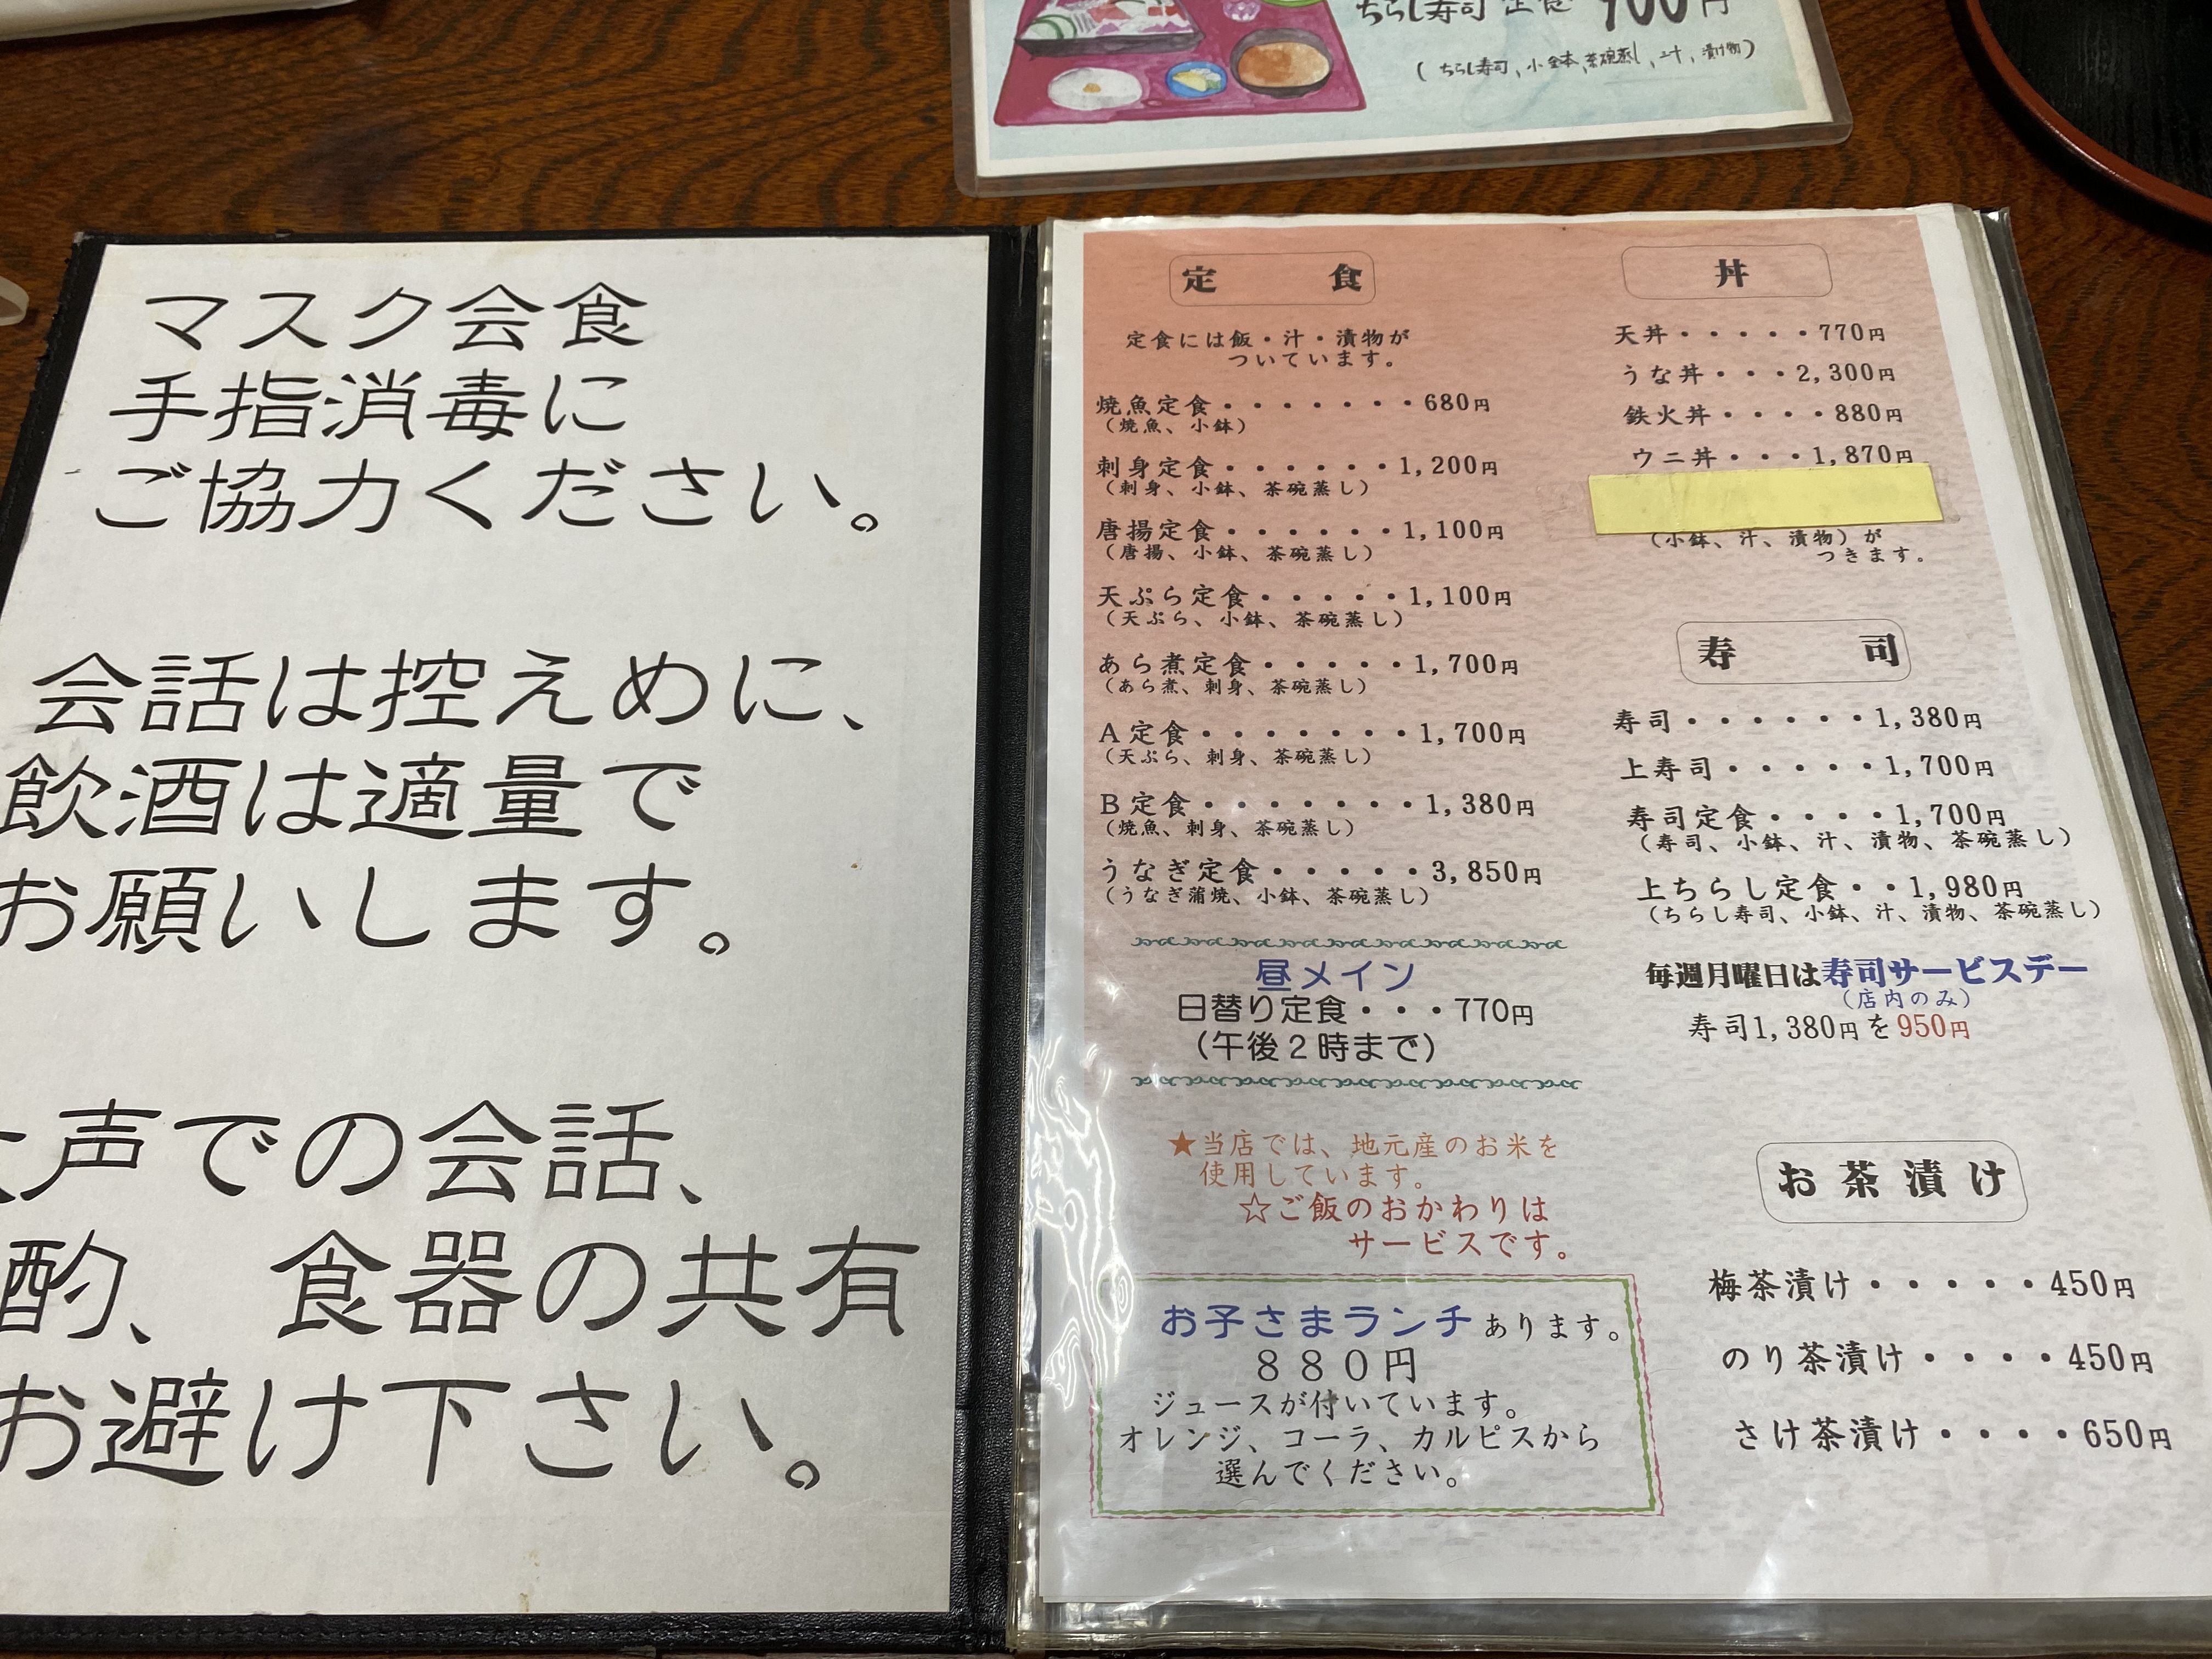 ちらし寿司定食 900円
(ちらし寿司、小鉢、茶碗蒸し、汁、漬物)
マスク会食
手指消毒に
ご協力ください。
会話は控えめに、
飲酒は適量で
お願いします。
声での会話、
酌、 食器の共有
お避け下さい。
定 食
定食には飯・汁・漬物が
ついています。
焼魚定食・・・・・・・680円
(焼魚、小鉢)
刺身定食・・・・・・1,200円
(刺身、小鉢、茶碗蒸し)
唐揚定食・・・・・・1,100円
(唐揚、小鉢、茶碗蒸し)
天ぷら定食・・・・・1,100円
(天ぷら、小鉢、茶碗蒸し)
あら煮定食・・・・・1,700円
(あら煮、刺身、茶碗蒸し)
A定食・・・・・・・1,700円
(天ぷら、刺身、茶碗蒸し)
B定食・・・・・・・1,380円
(焼魚、刺身、茶碗蒸し)
うなぎ定食・・・・・3,850円
(うなぎ蒲焼、小鉢、茶碗蒸し)
昼メイン
日替り定食・・・770円
(午後2時まで)
★当店では、地元産のお米を
使用しています。
☆ご飯のおかわりは
サービスです。
お子さまランチあります。
880円
ジュースが付いています。
オレンジ、コーラ、カルピスから
選んでください。
丼
天丼・・・・・770円
うな丼・・・2,300円
鉄火丼・・・・880円
ウニ丼・・・1,870円
(小鉢、汁、漬物)が
つきます。
寿 司
寿司・・・・・・1,380円
上寿司・・・・・1,700円
寿司定食・・・・1,700円
(寿司、小鉢、汁、漬物、茶碗蒸し)
上ちらし定食・・1,980円
(ちらし寿司、小鉢、汁、漬物、茶碗蒸し)
毎週月曜日は寿司サービスデー
(店内のみ)
寿司1,380円を950円
お茶漬け
梅茶漬け・・・・・450円
のり茶漬け・・・・450円
さけ茶漬け・・・・650円